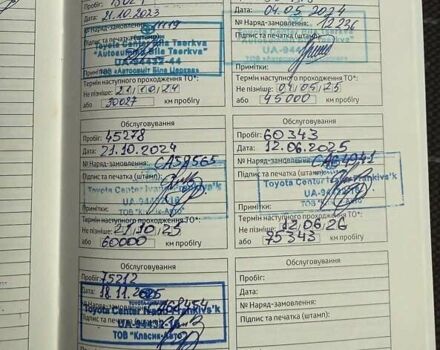 21.10.2023
№ Наряд-замовлення:
Підпис та печатка
Toyota Center Bila Tserkva
"Autosamit Bila Tserkva"
UA-94432-44
ТОВ «Автосаміт Біла Церква»
Термін наступного проходження ТО*:
Не пізніше: 21.10.24
або 30027 км пробігу
Дата: 04.05.2024
№ Наряд-замовлення: 12236
Підпис та печатка (штамп):
Термін наступного проходження ТО*:
Не пізніше: 04.05.25
або 45000 км пробігу
Обслуговування
Пробіг: 45278
Дата: 21.10.2024
№ Наряд-замовлення: CA59565
Підпис та печатка (штамп):
Toyota Center Ivano-Frankivs'k
UA-94432-10
ТОВ "Класик-Авто"
Примітки:
Термін наступного проходження ТО*:
Не пізніше: 21.10.25
або 60000 км пробігу
Обслуговування
Пробіг: 60343
Дата: 12.06.2025
№ Наряд-замовлення:
Підпис та печатка (штамп):
Toyota Center Ivano-Frankivs'k
ТОВ "Класик-Авто"
Примітки:
Термін наступного проходження ТО*:
Не пізніше: 12.06.26
або 75343 км пробігу
Обслуговування
Пробіг: 75212
Дата: 18.11.2025
Toyota Center Ivano-Frankivs'k
UA-94432-10
ТОВ "Класик-Авто"
Обслуговування
Пробіг:
Дата:
№ Наряд-замовлення:
Підпис та печатка (штамп):
Примітки: